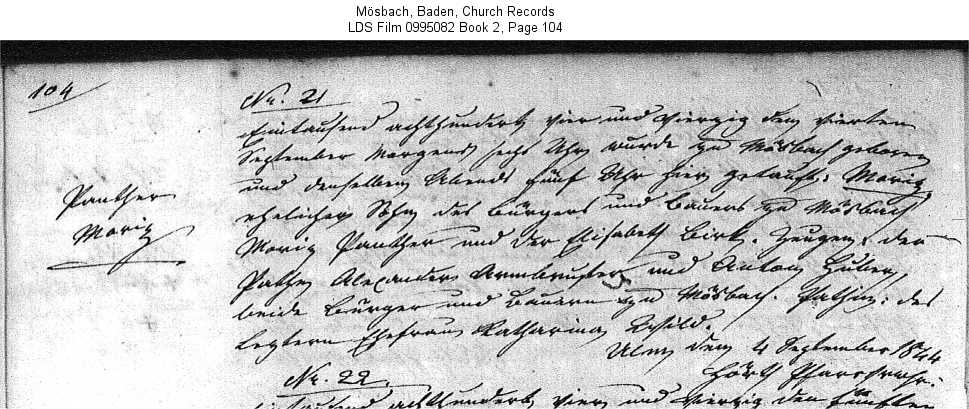 Mösbach, Baden, Church Records
LDS Film 0995082 Book 2, Page 104
104
Nr. 21
Eintausend achthundert vier und vierzig den vierten
September Morgens sechs Uhr wurde zu Mösbach geboren
und denselben Abends fünf Uhr hier getauft: Moriz
Panther
Moriz
ehelicher Sohn des Bürgers und Bauers zu Mösbach
Moriz Panther und der Elisabeth Birk. Zeugen: der
Pathe Alexander Armbruster und Anton Huber,
beide Bürger und Bauern zu Mösbach. Pathin: des
letztern Ehefrau Katharina Wild.
Ulm den 4 September 1844
Pfarrverw.
Nr. 22.
Eintausend achthundert vier und vierzig den fünften